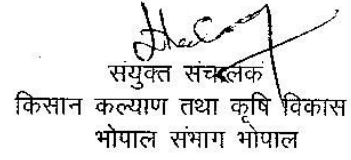 संयुक्त संचालक
किसान कल्याण तथा कृषि विकास
भोपाल संभाग भोपाल